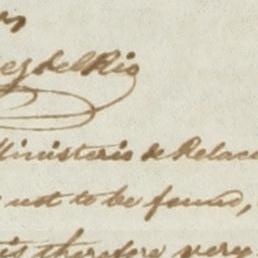 del Rio
Ministerio de Relac
not to be found,
is therefore very